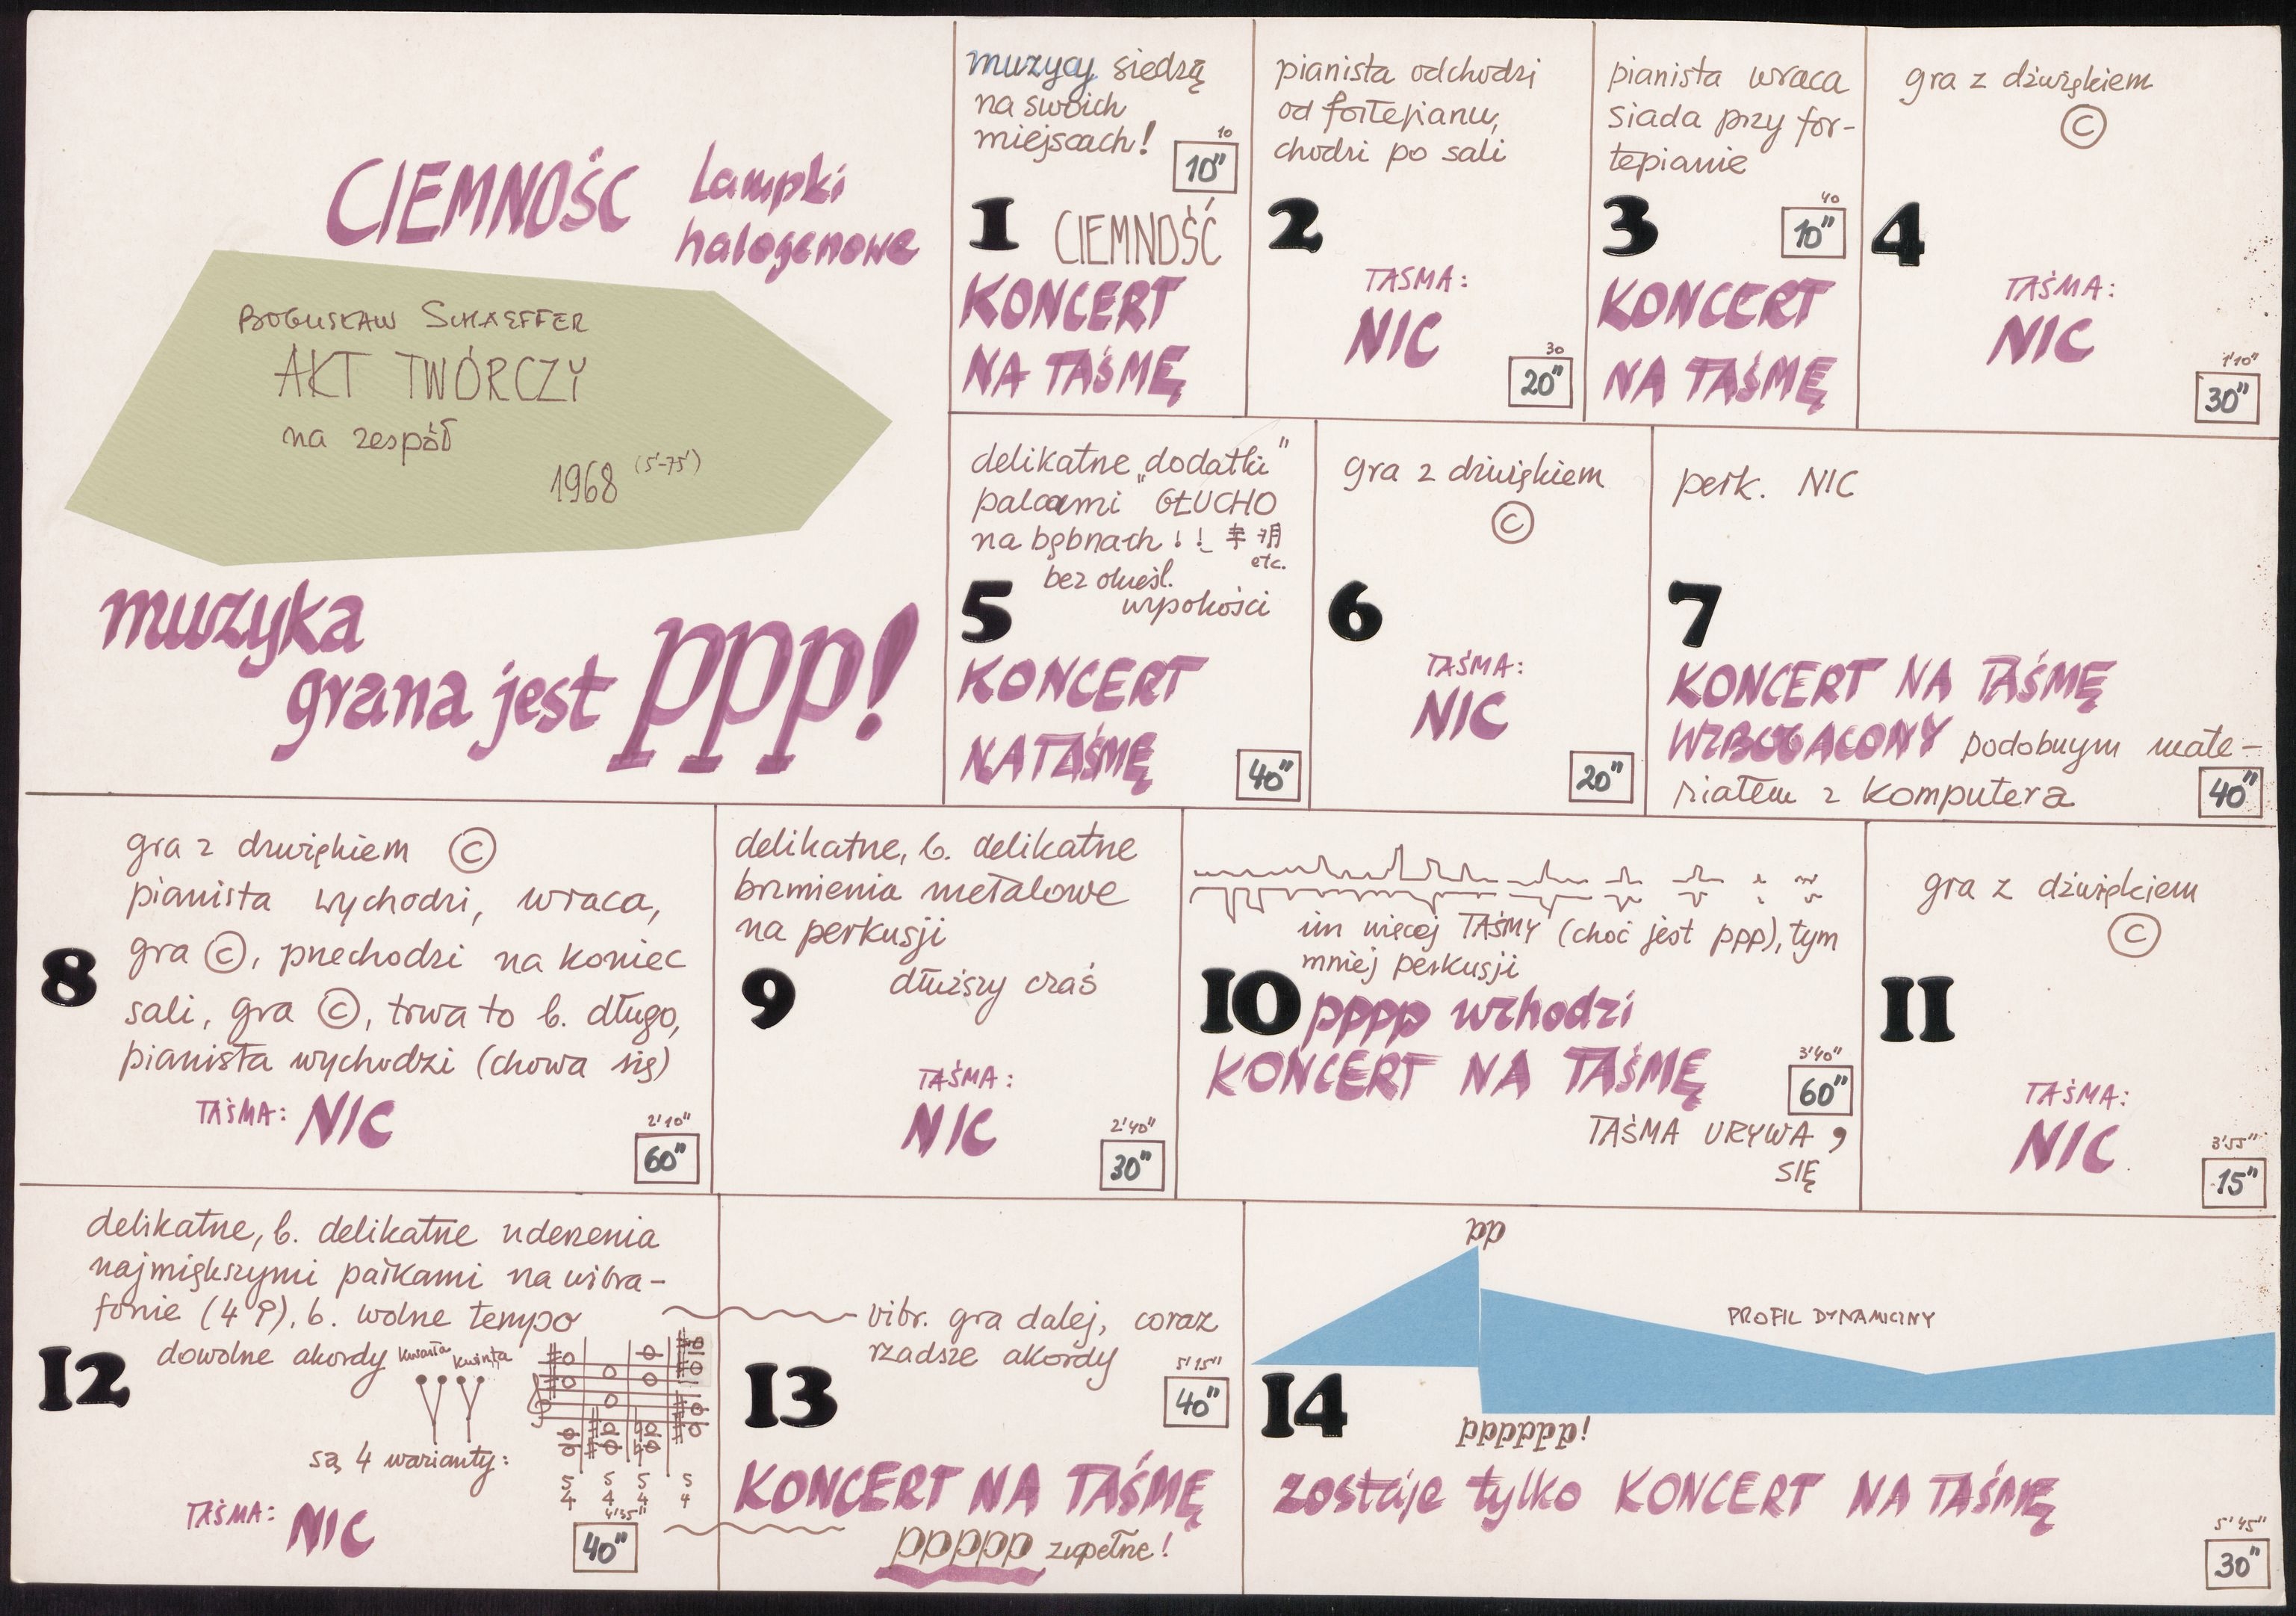 CIEMNOŚĆ
Lampki
halogenowe
BOGUSŁAW SCHAEFFER
AKT TWÓRCZY
na zespół
1968 (5'-75')
muzyka
grana jest ppp!
muzycy siedzą
na swoich
miejscach!
10
10"
1 CIEMNOŚĆ
KONCERT
NA TAŚMĘ
pianista odchodzi
od fortepianu,
chodzi po sali
2
TAŚMA:
NIC
30
20"
pianista wraca
siada przy for-
tepianie
40
10"
3
KONCERT
NA TAŚMĘ
gra z dźwiękiem
©
4
TAŚMA:
NIC
1'10"
30"
delikatne „dodatki"
palcami GŁUCHO
na bębnach !!
etc.
bez określ.
wysokości
5
KONCERT
NA TAŚMĘ
40"
gra z dźwiękiem
©
6
TAŚMA:
NIC
20"
perk. NIC
7
KONCERT NA TAŚMĘ
WZBOGACONY podobnym mate-
riałem z komputera
40"
gra z dźwiękiem ©
pianista wychodzi, wraca,
gra ©, przechodzi na koniec
8
sali, gra ©, trwa to b. długo,
pianista wychodzi (chowa się)
TAŚMA: NIC
2'10"
60"
delikatne, b. delikatne
brzmienia metalowe
na perkusji
9
dłuższy czas
TAŚMA:
NIC
2'40"
30"
im więcej TAŚMY (choć jest ppp), tym
mniej perkusji
10 pppp wchodzi
KONCERT NA TAŚMĘ
3'40"
60"
TAŚMA URYWA ,
SIĘ
gra z dźwiękiem
©
11
TAŚMA:
NIC
3'55"
15"
delikatne, b. delikatne uderzenia
najmiększymi pałkami na wibra-
fonie (4), b. wolne tempo
dowolne akordy kwarta kwinta
12
są 4 warianty:
5 5 5 5
4 4 4 4
TAŚMA: NIC
4'35"
40"
vibr. gra dalej, coraz
rzadsze akordy
5'15"
40"
13
KONCERT NA TAŚMĘ
ppppp zupełne!
pp
PROFIL DYNAMICZNY
14
pppppp!
zostaje tylko KONCERT NA TAŚMĘ
5'45"
30"